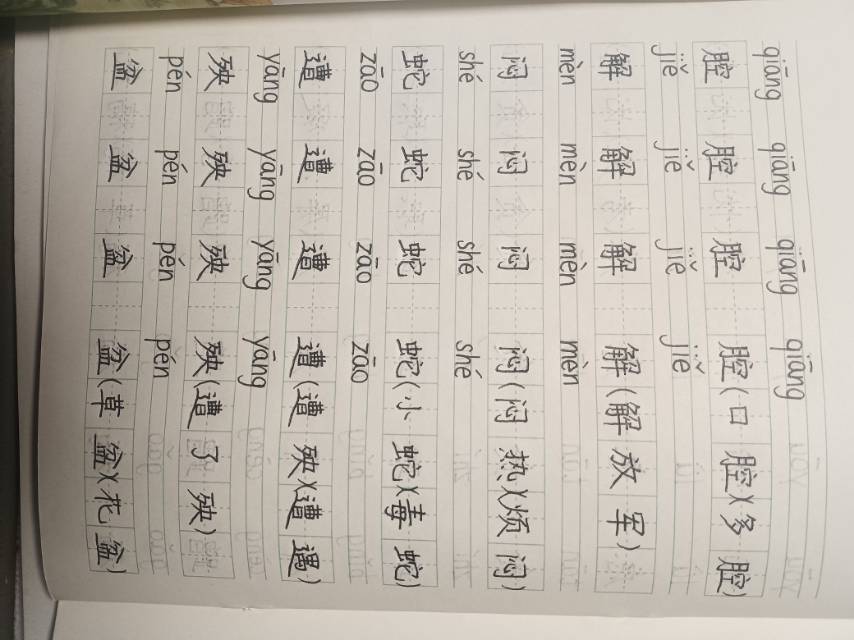 qiāng qiāng qiāng qiāng
腔 腔 腔 腔(口腔)(多腔)
jiě jiě jiě jiě
解 解 解 解(解放军)
mèn mèn mèn mèn
闷 闷 闷 闷(闷热)(烦闷)
shé shé shé shé
蛇 蛇 蛇 蛇(小蛇)(毒蛇)
zāo zāo zāo zāo
遭 遭 遭 遭(遭殃)(遭遇)
yāng yāng yāng yāng
殃 殃 殃 殃(遭了殃)
pén pén pén pén
盆 盆 盆 盆(草盆)(花盆)